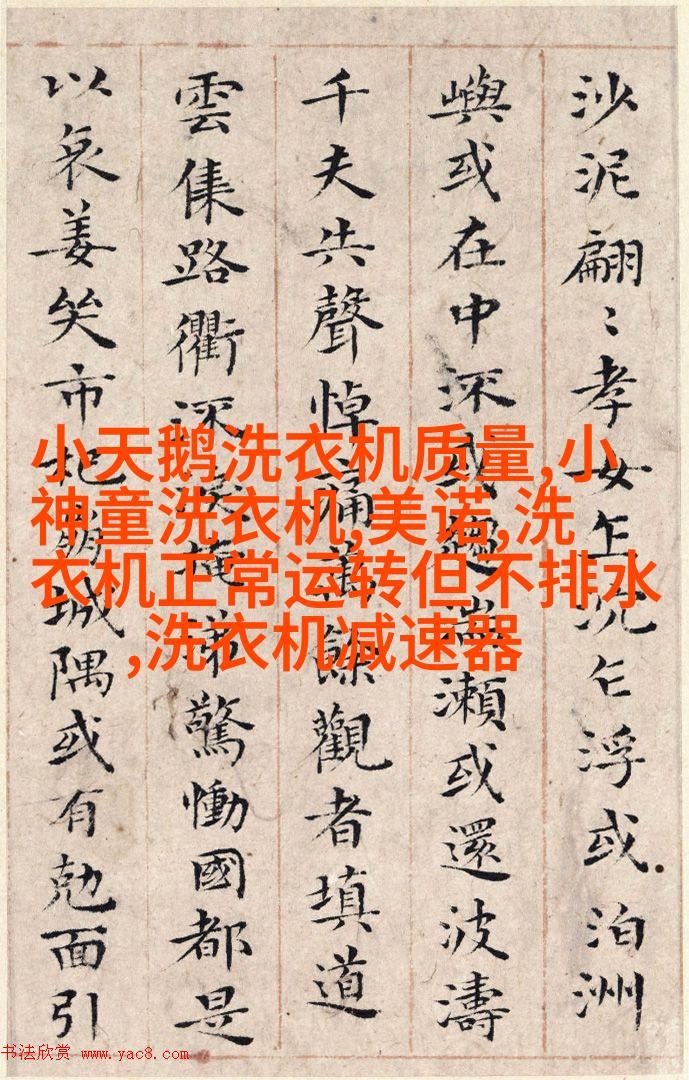 沙泥翩〻孝女乍沉乍浮或泊洲
嶼或在中流或趨湍瀨或還波濤
千夫失聲悼痛萬餘觀者填道
雲集路衢流淚掩涕驚慟國都是
以哀姜哭市杞崩城隅或有剋面引
小天鹅洗衣机质量,小
神童洗衣机,美诺,洗
衣机正常运转但不排水
,洗衣机减速器
书法欣赏 www.yac8.com